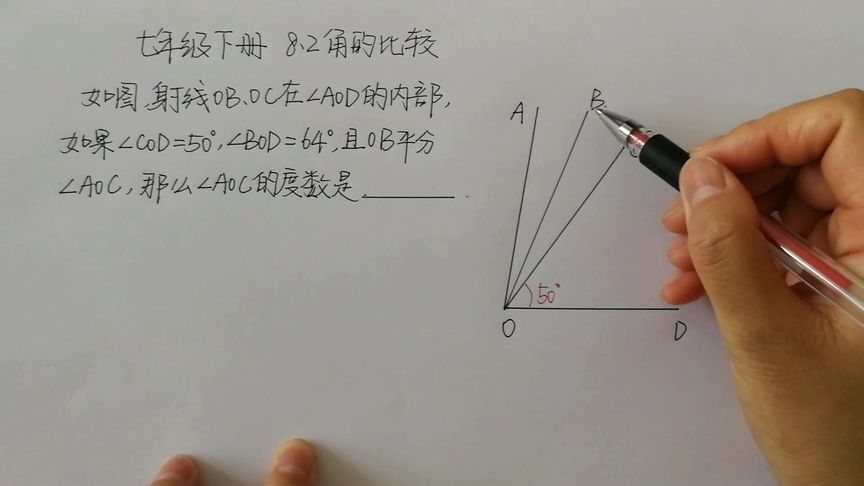 七年级下册 8.2角的比较
如图,射线OB、OC在∠AOD的内部,
如果∠COD=50°,∠BOD=64°,且OB平分
∠AOC,那么∠AOC的度数是________.
A
B
50°
O
D